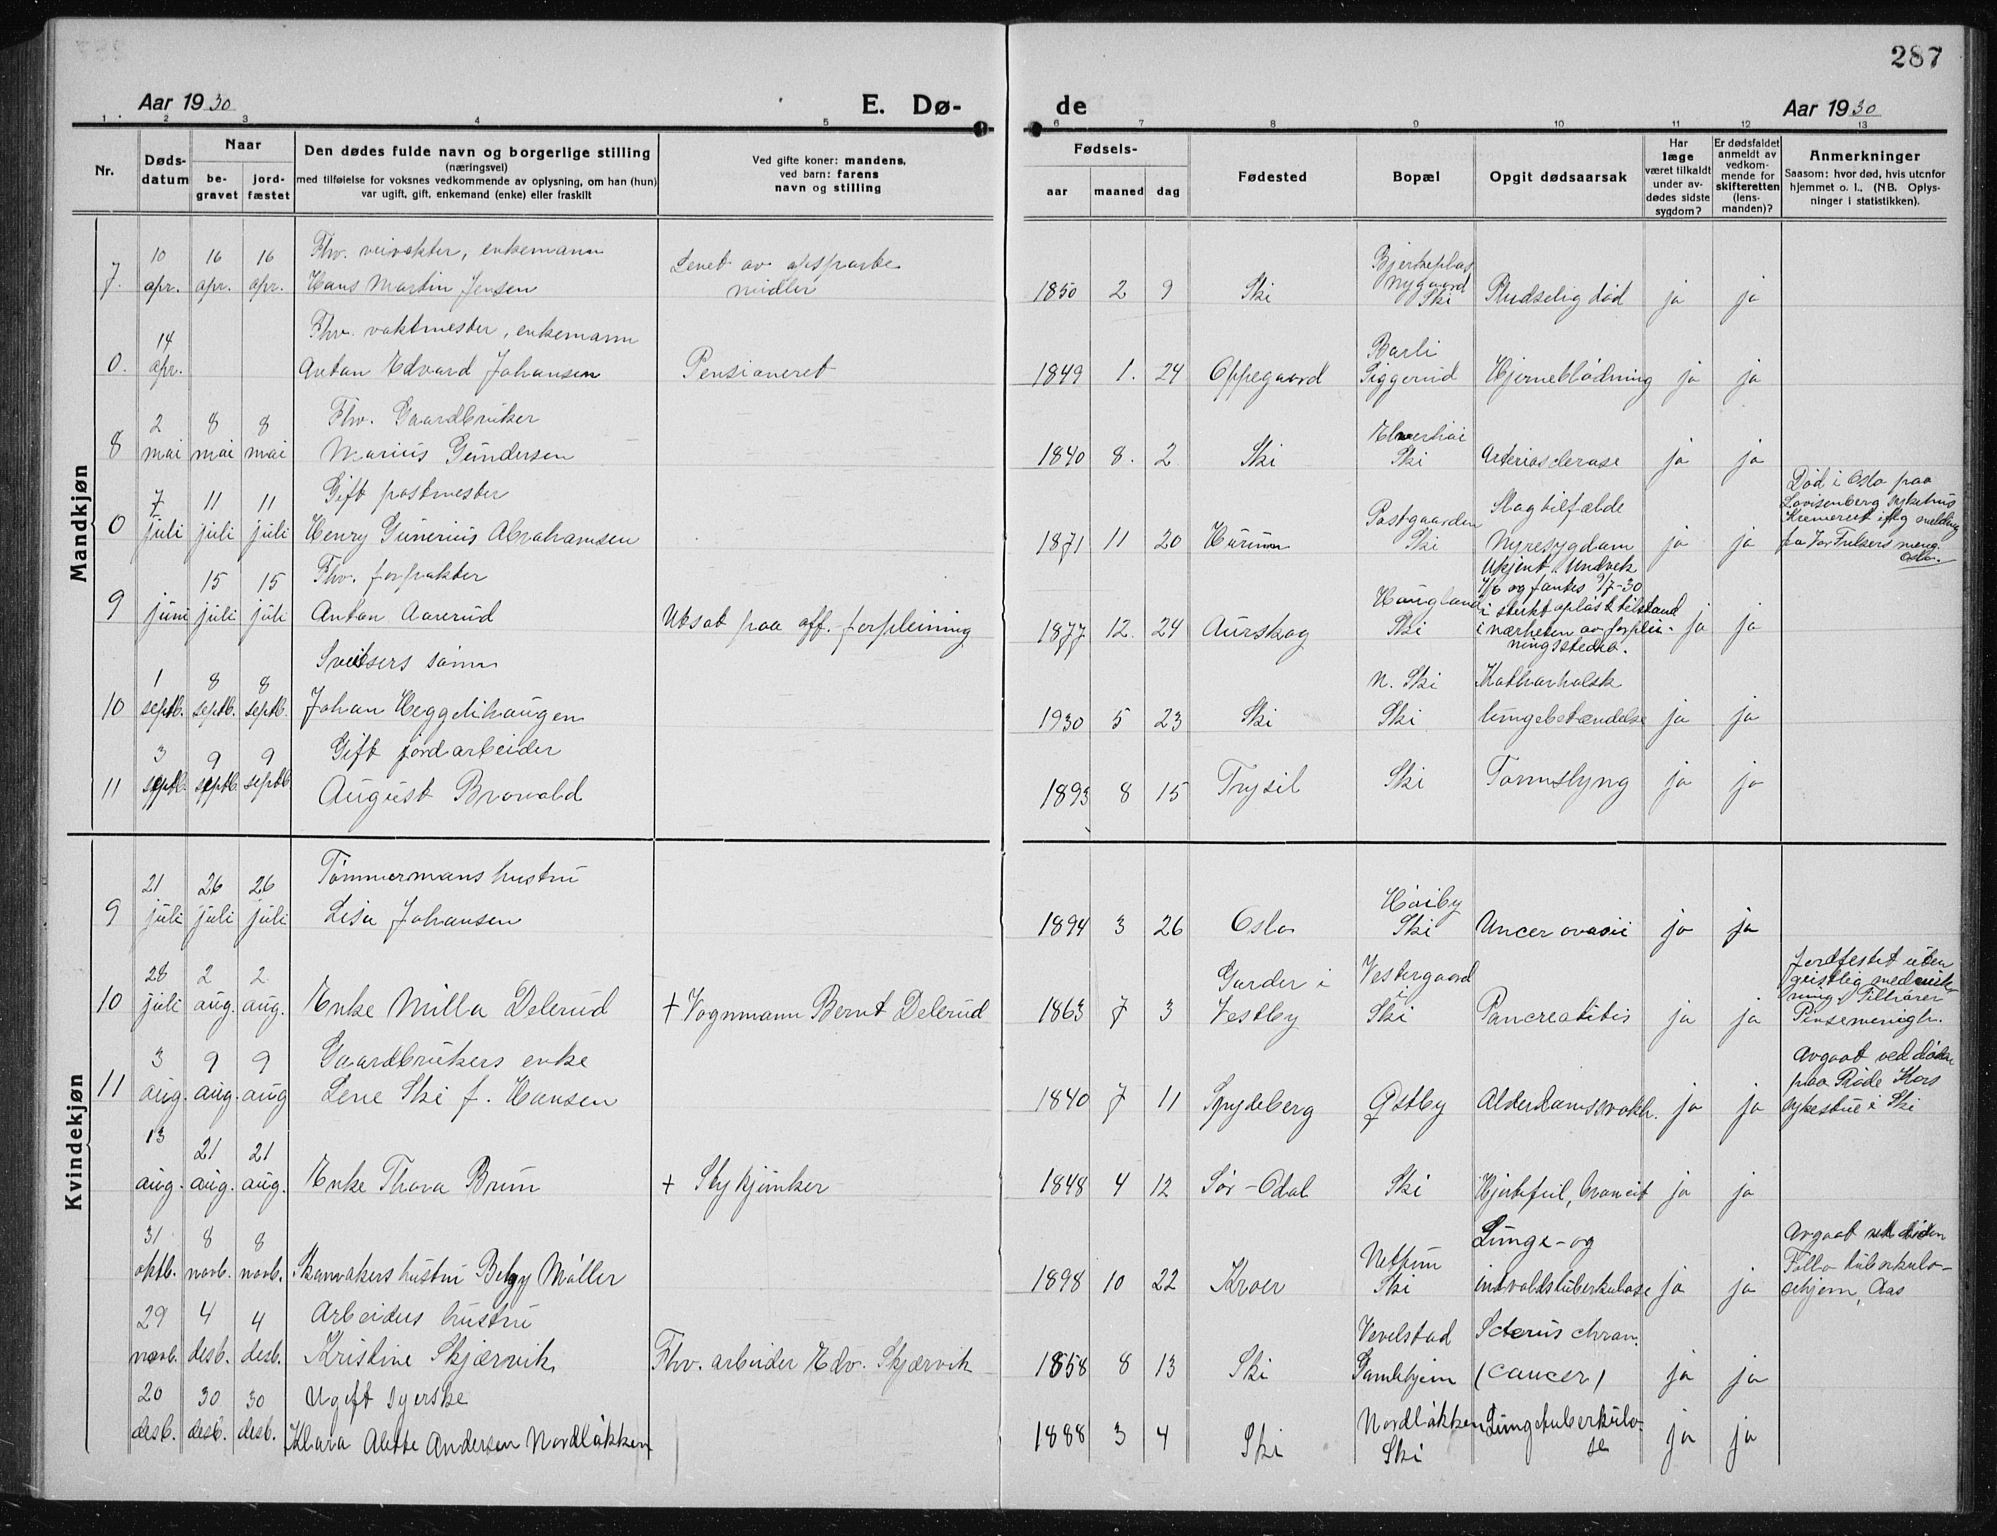 287
Aar 1930
E. Dø-
de
Aar 1930
1 2 3 4 5 6 7 8 9 10 11 12 13
Nr.
Døds-
datum
Naar
be-
gravet
jord-
fæstet
Den dødes fulde navn og borgerlige stilling
(næringsvei)
med tilføielse for voksnes vedkommende av oplysning, om han (hun)
var ugift, gift, enkemand (enke) eller fraskilt
Ved gifte koner: mandens,
ved barn: farens
navn og stilling
Fødsels-
aar maaned dag
Fødested
Bopæl
Opgit dødsaarsak
Har
læge
været tilkaldt
under av-
dødes sidste
sygdom?
Er dødsfaldet
anmeldt av
vedkom-
mende for
skifteretten
(lens-
manden)?
Anmerkninger
Saasom: hvor død, hvis utenfor
hjemmet o. l., (NB. Oplys-
ninger i statistikken).
Mandkjøn
10 16 16 Fhv. veivokter, enkemann Levet av opsparte Bjerkeplas
7. apr. apr. apr. Hans Martin Jensen midler 1850 2 9 Ski Nygaard Ski Pludselig død ja ja
14 Fhv. vaktmester, enkemann
0. apr. Anton Edvard Johansen Pensioneret 1849 1. 24 Oppegaard Siggerud Hjerneblødning ja ja
2 8 8 Fhv. Gaardbruker
8 mai mai mai Marius Gundersen 1840 8. 2 Ski Ski Arteriosclerose ja ja
7 11 11 Gift postmester Postgaarden Slagtilfælde Død i Oslo paa
0 juli juli juli Henry Gunerius Abrahamsen 1871 11 20 Hurum Ski Nyresygdom ja ja Lovisenberg sykehus
Kremeret iflg melding
fra Vor Frelsers meng.
Oslo.
15 15 Fhv. forpakter Ukjent. Undvek
9 juni juli juli Anton Aarerud Utsat paa off. forpleining 1877 12. 24 Aurskog Haugland Ski 7/6 og fantes 9/7-30
i sterkt opløst tilstand
i nærheten av forplei-
ningsstedet. ja ja
1 8 8 Sveitsers sønn N. Ski Katharhalsk
10 septb. septb. septb. Johan Heggelihaugen 1930 5 23 Ski Ski lungebetændelse ja ja
3 9 9 Gift jordarbeider
11 septb. septb. septb. August Brovold 1893 8 15 Trysil Ski Tarmslyng ja ja
Kvindekjøn
21 26 26 Tømmermans hustru Høiby
9 juli juli juli Lisa Johansen 1894 3 26 Oslo Ski ja ja
28 2 2 Garder i Vestergaard i Jordfestet uten
10 juli aug. aug. Enke Milla Delerud + Vognmann Bernt Delerud 1863 7 3 Vestby Ski Pancreatitis ja ja geistlig medvirk-
ning. Tilhører
Pinsemenigh.
3 9 9 Gaardbrukers enke Avgaat ved døden
11 aug. aug. aug Lene Ski f. Hansen 1840 7 11 Spydeberg Østby Alderdomssvakh. ja ja paa Røde Kors
sykestue i Ski
13 21 21
aug. aug. aug. Enke Thora Brun + Stykjunker 1848 4 12 Sør-Odal Ski Hjertefeil, broncit ja ja
31 8 8 Lunge- og Avgaat ved døden
oktb. novb. novb. Skomakers hustru Møller 1898 10 22 Kroer Ski indvoldstuberkulose ja ja Follo tuberkulo-
sehjem, Aas
29 4 4 Arbeiders hustru Vevelstad
novb. desb. desb. Kristine Skjærvik Fhv. arbeider Edv. Skjærvik 1858 8 13 Ski Gamlehjem (cancer) ja ja
20 30 30 Ugift syerske Nordløkken Lungetuberkulo-
desb. desb. desb. Klara Alette Andersen Nordløkken 1888 3 4 Ski Ski se ja ja